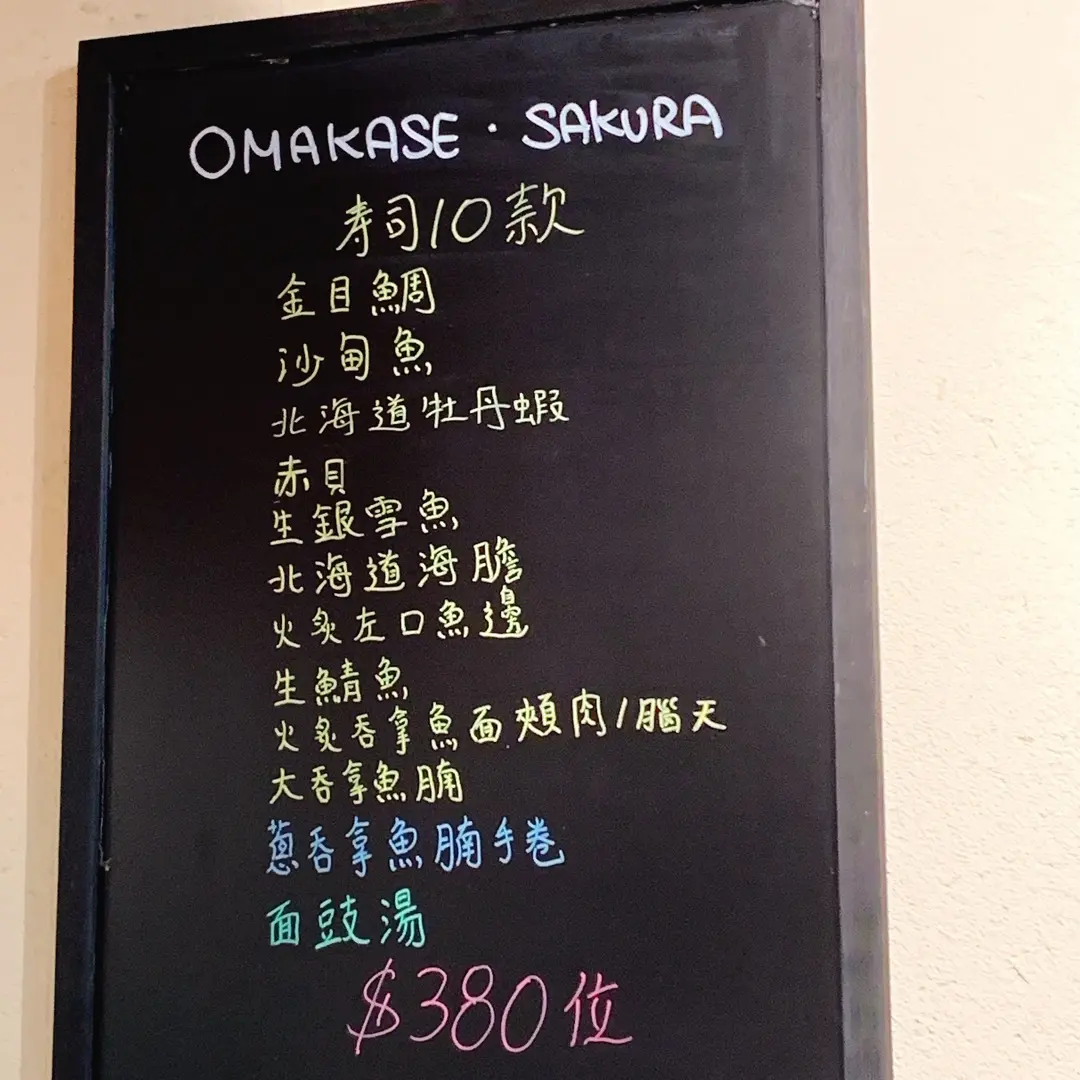 OMAKASE · SAKURA
寿司10款
金目鯛
沙甸魚
北海道牡丹蝦
赤貝
生銀雪魚
北海道海膽
火炙左口魚邊
生鯖魚
火炙吞拿魚面頰肉/腦天
大吞拿魚腩
蔥吞拿魚腩手卷
面豉湯
$380位